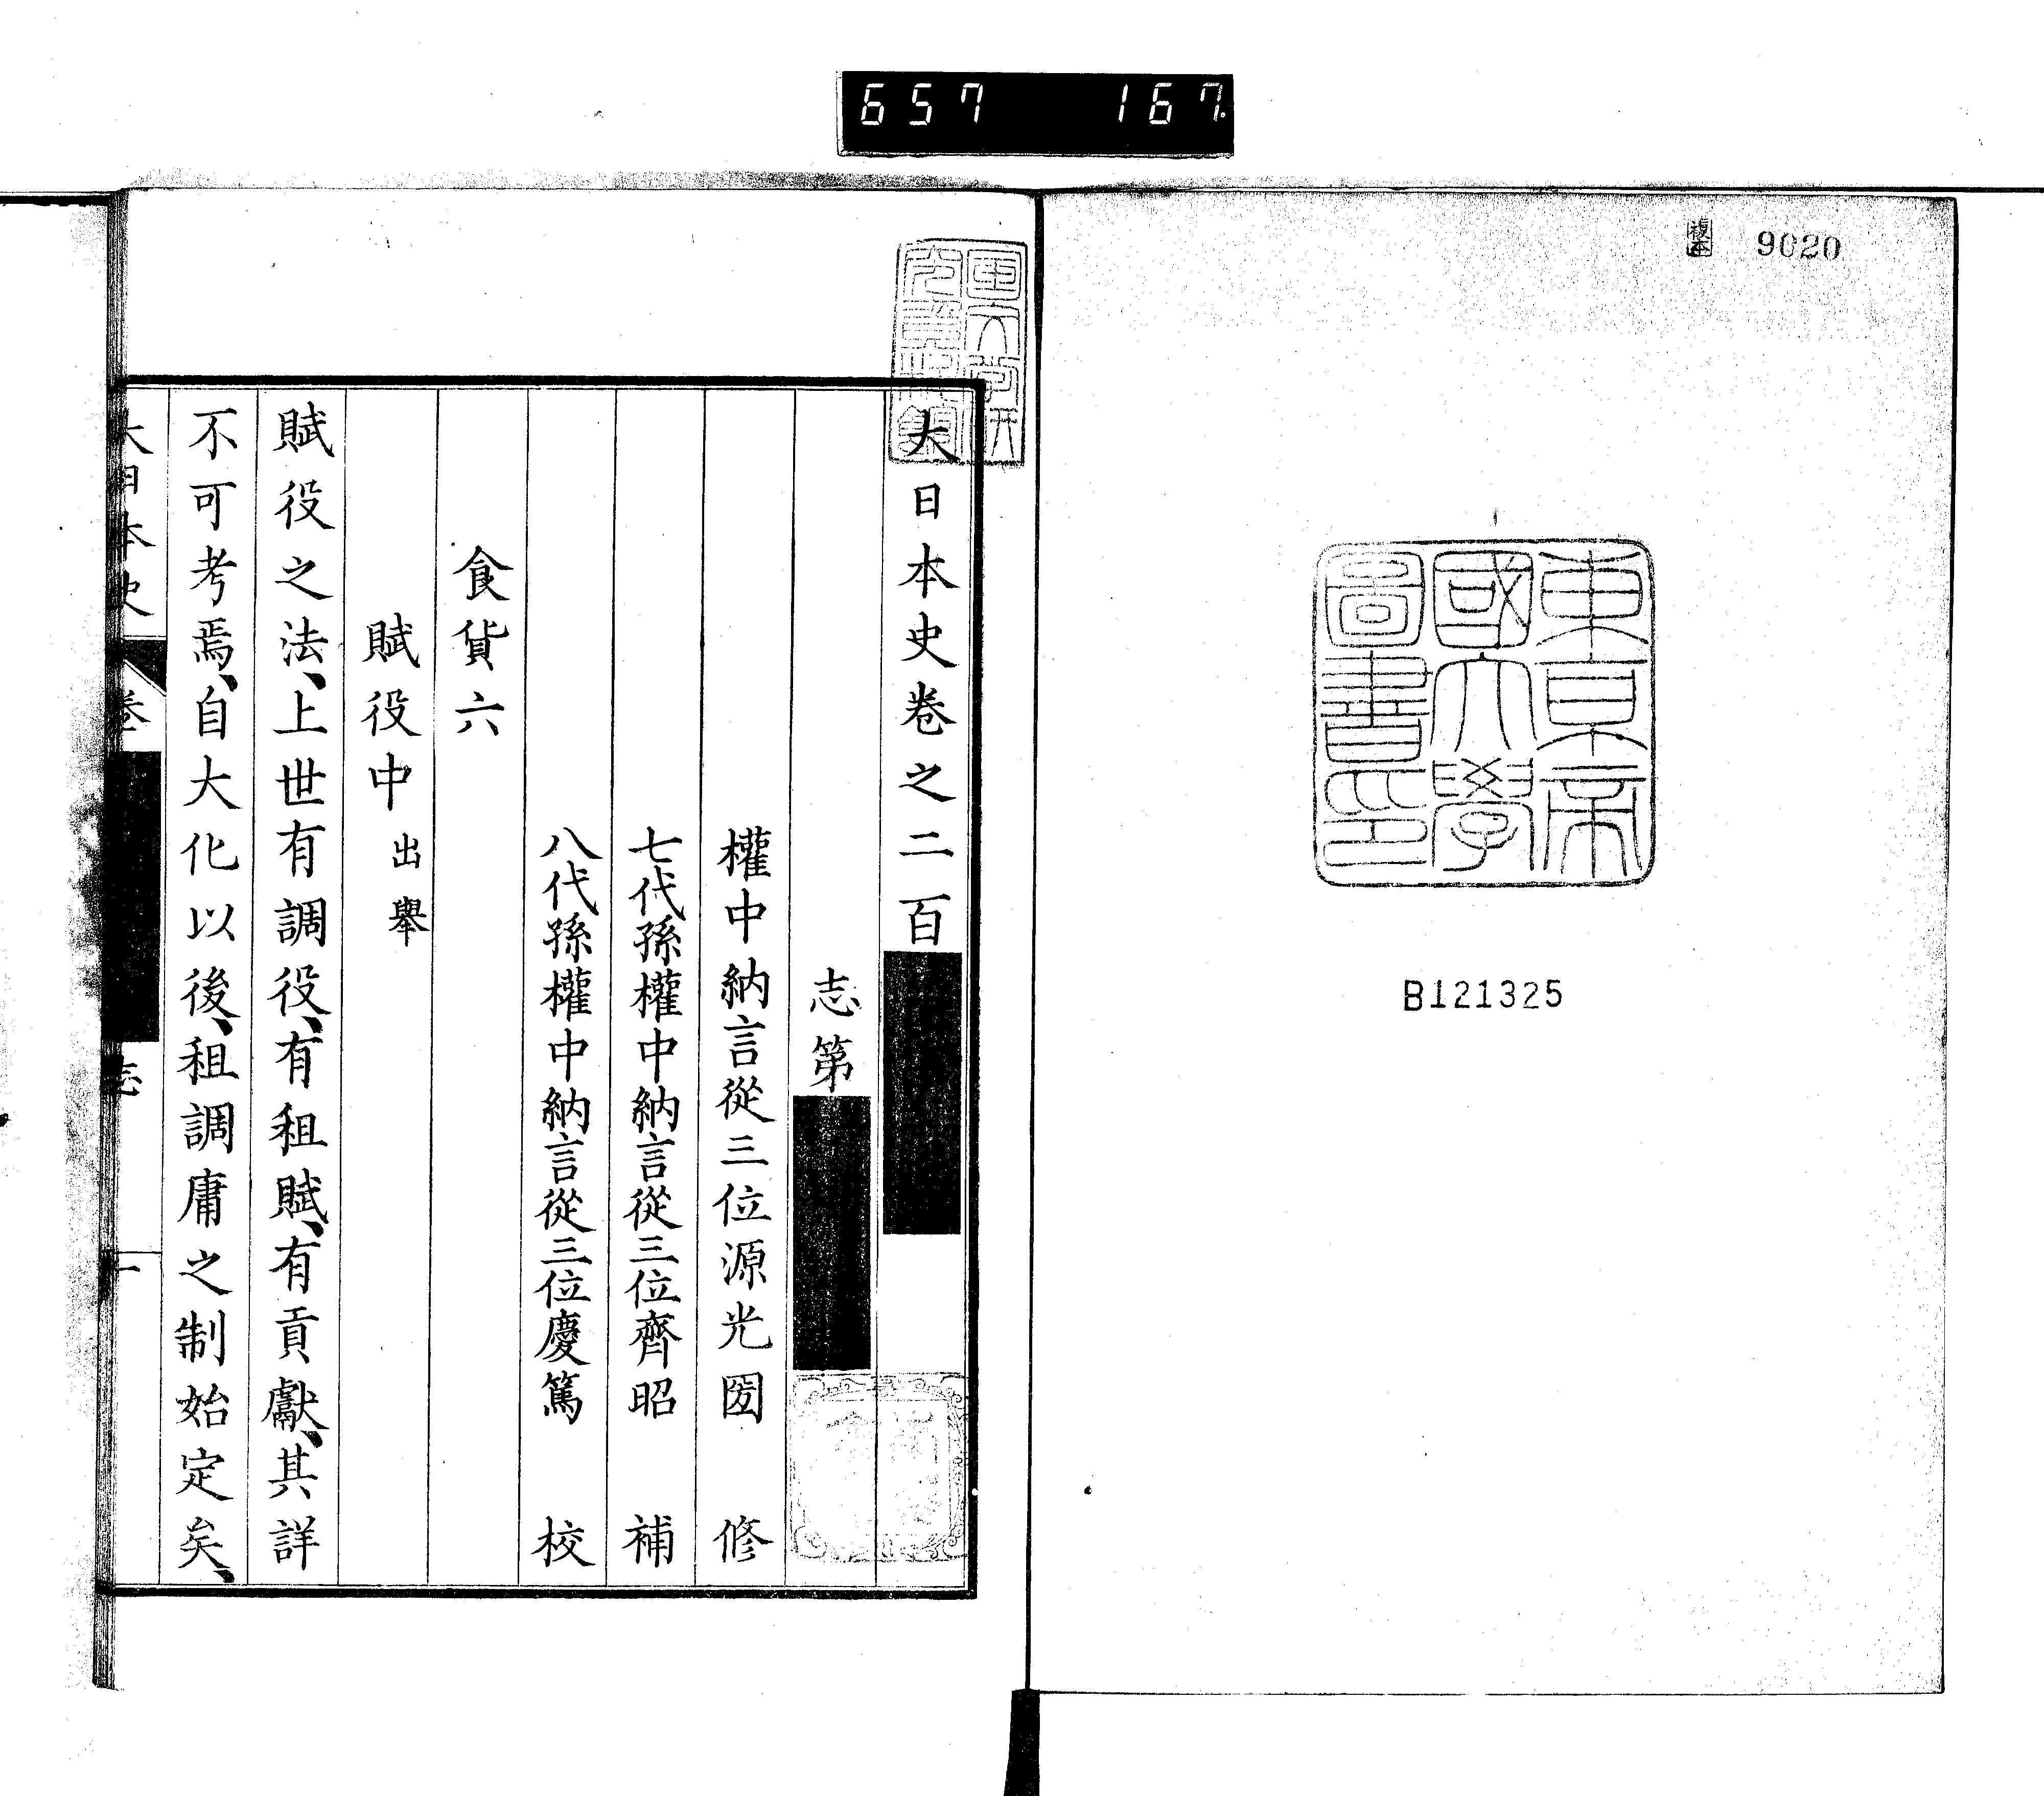 657 167.
複本 9620
東京帝
國大學
圖書印
B121325
大日本史卷之二百
志第
權中納言從三位源光圀 修
七代孫權中納言從三位齊昭 補
八代孫權中納言從三位慶篤 校
食貨六
賦役中 出擧
賦役之法、上世有調役、有租賦、有貢獻、其詳
不可考焉、自大化以後、租調庸之制始定矣、
大日本史 卷 志 一